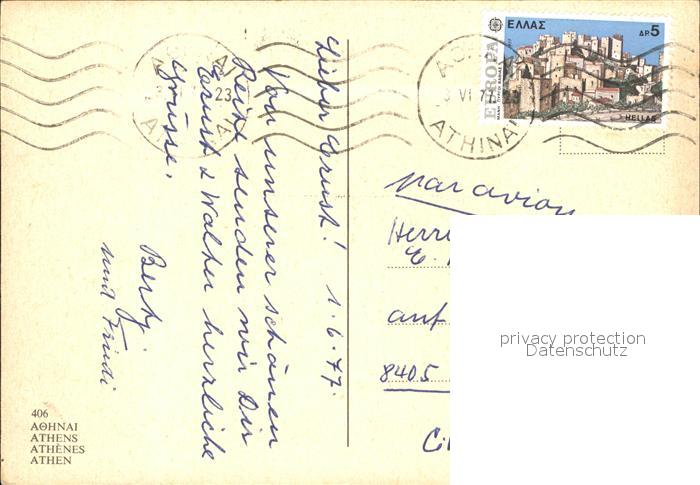 Lieber Ernst! 1.6.77.
Von unserer schönen
Reise senden wir Dir
Ernst & Walter herzliche
Grüsse.
Berty
und Friedi
406
ΑΘΗΝΑΙ
ATHENS
ATHÈNES
ATHEN
EUROPA
ΕΛΛΑΣ
ΔΡ 5
HELLAS
ATHINAI
23
par avion
Herrn
E.
auf
8405
privacy protection
Datenschutz